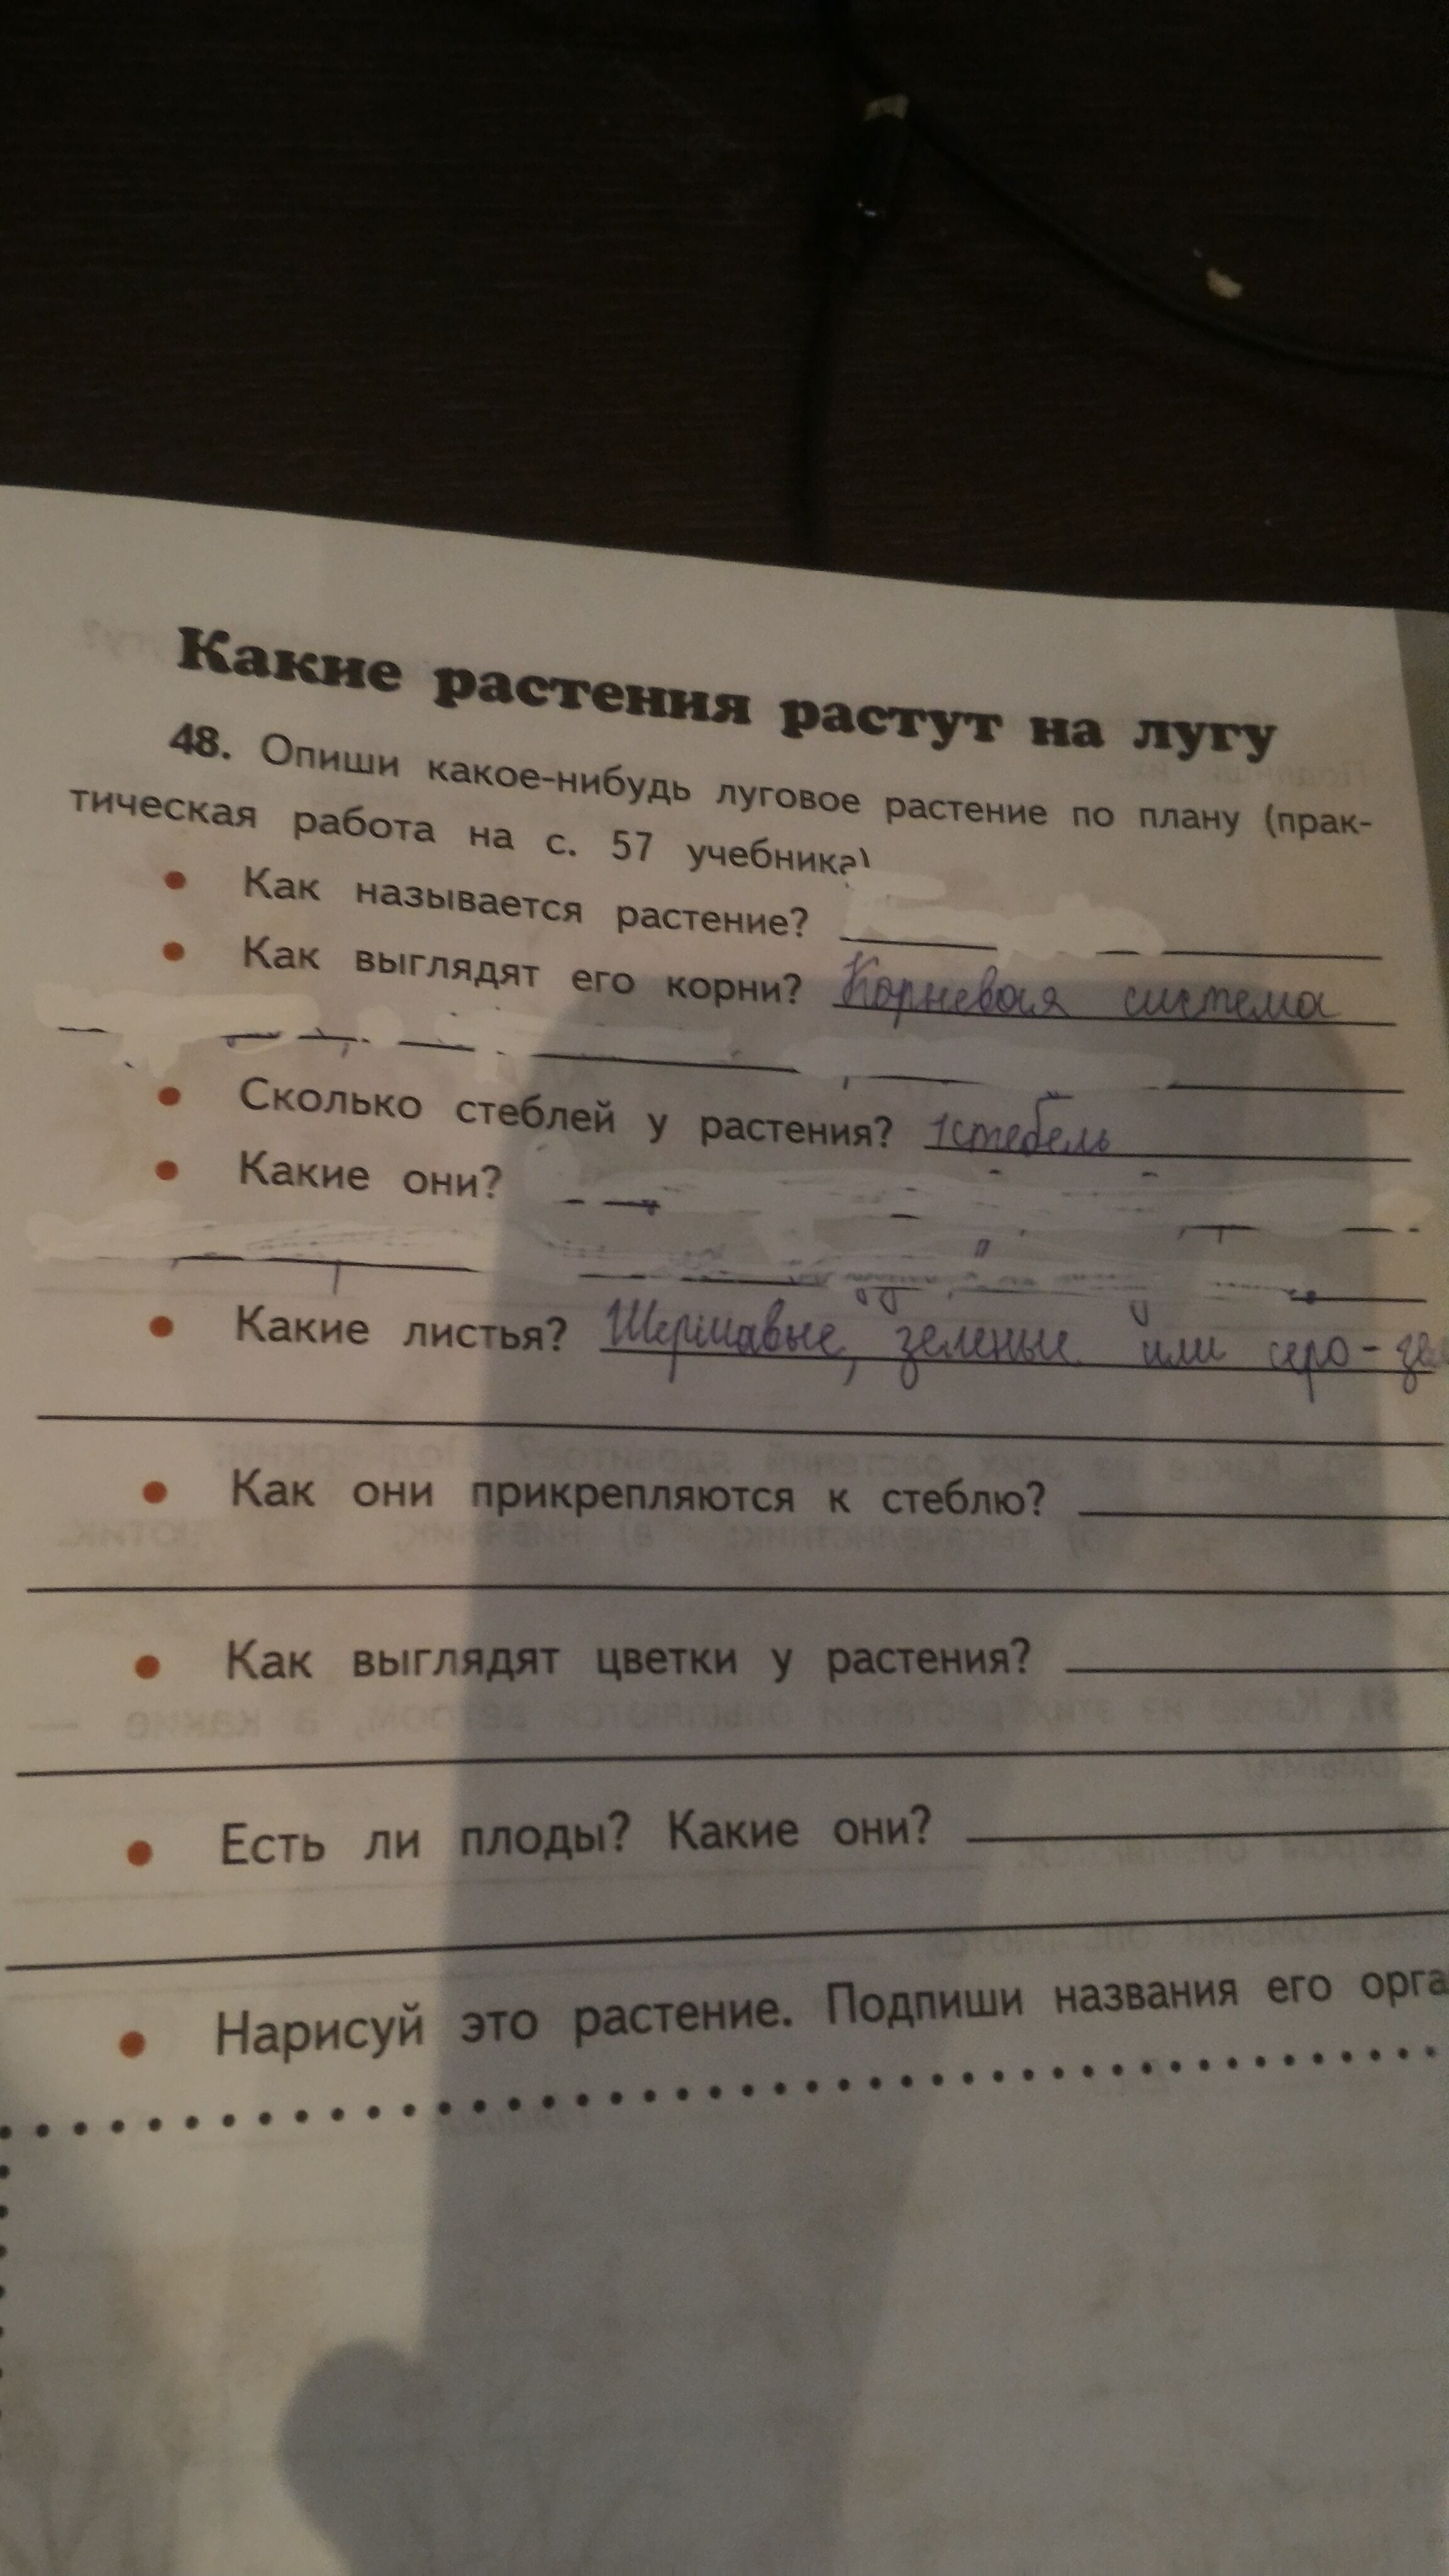 Какие растения растут на лугу
48. Опиши какое-нибудь луговое растение по плану (прак-
тическая работа на с. 57 учебника)
• Как называется растение?
• Как выглядят его корни? Корневая система
• Сколько стеблей у растения? 1 стебель
• Какие они?
• Какие листья? Шершавые, зеленые или серо-зе
• Как они прикрепляются к стеблю?
• Как выглядят цветки у растения?
• Есть ли плоды? Какие они?
• Нарисуй это растение. Подпиши названия его орга